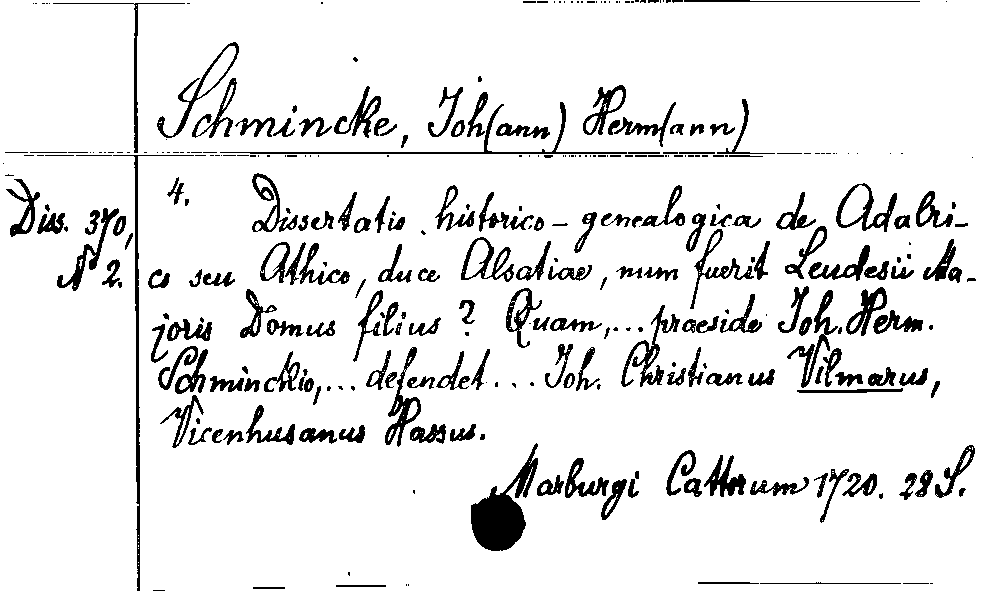 Schmincke, Joh(ann) Herm(ann)
Diss. 370,
N 2.
4. Dissertatio historico-genealogica de Adalri-
co seu Athico, duce Alsatiae, num fuerit Leudesii Ma-
joris Domus filius? Quam,... praeside Joh. Herm.
Schminckio,... defendet... Joh. Christianus Vilmarus,
Vicenhusanus Hassus.
Marburgi Cattorum 1720. 28 S.